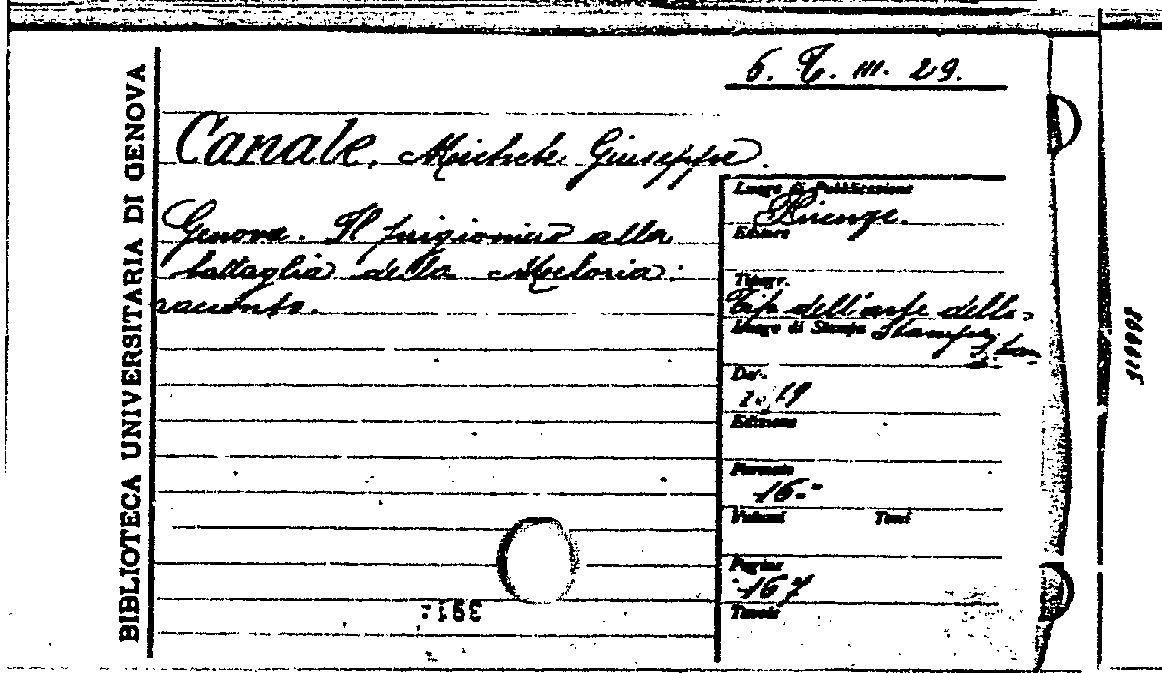 BIBLIOTECA UNIVERSITARIA DI GENOVA
6. T. III. 29.
Canale, Michele Giuseppe.
Genova. Il prigioniero alla
battaglia della Meloria:
racconto.
Luogo di Pubblicazione
Firenze.
Editore
Tipogr.
Tip. dell'arte della
Luogo di Stampa Stampa
Data
Edizione
Formato
16.°
Volumi Tomi
Pagine
167
Tavole